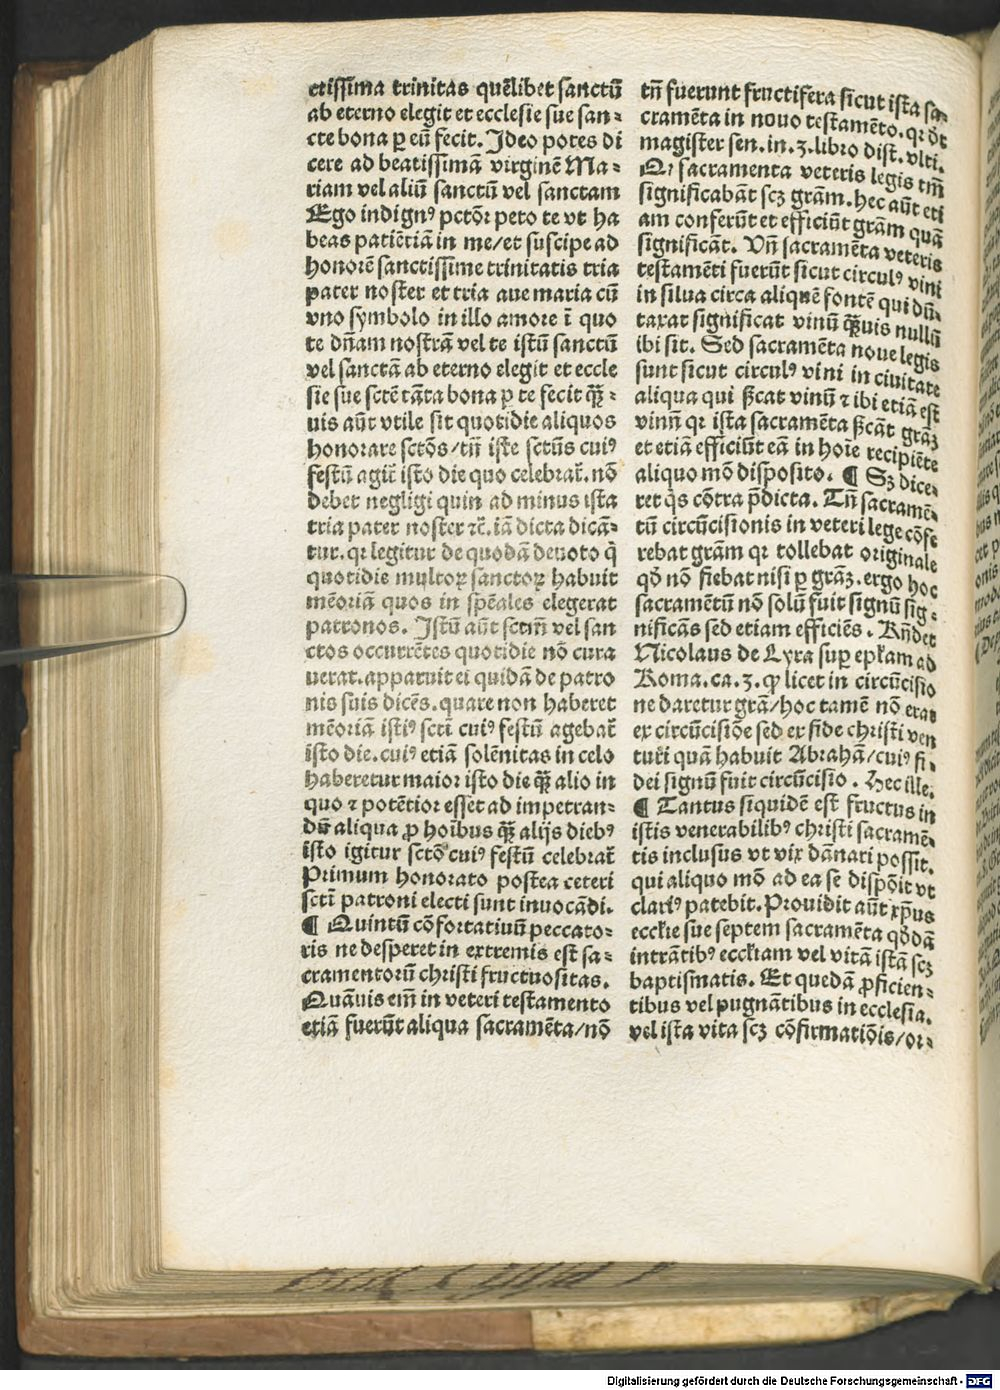 ctissima trinitas quēlibet sanctū
ab eterno elegit et ecclesie sue san⸗
cte bona ꝑ eū fecit. Ideo potes di
cere ad beatissimā virginē Ma⸗
riam vel aliū sanctū vel sanctam
Ego indignꝰ pctōꝛ peto te vt ha
beas patiētiā in me/et suscipe ad
honoꝛē sanctissime trinitatis tria
pater noster et tria aue maria cū
vno symbolo in illo amoꝛe ī quo
te dn̄am nostrā vel te istū sanctū
vel sanctā ab eterno elegit et eccle
sie sue sctē tāta bona ꝑ te fecit qȝ̄⸗
uis aūt vtile sit quotidie aliquos
honoꝛare sctōs/tn̄ iste sctūs cuiꝰ
festū agit̄ isto die quo celebrat̄. nō
debet negligi quin ad minus ista
tria pater noster ⁊c̄. iā dicta dicā⸗
tur. qꝛ legitur de quodā deuoto q̇
quotidie multoꝝ sanctoꝝ habuit
mēoꝛiā quos in spēales elegerat
patronos. Istū aūt sctm̄ vel san
ctos occurrētes quotidie nō cura
uerat. apparuit ei quidā de patro
nis suis dicēs. quare non haberet
mēoꝛiā istiꝰ sctī cuiꝰ festū agebat̄
isto die. cuiꝰ etiā solēnitas in celo
haberetur maioꝛ isto die qȝ̄ alio in
quo ⁊ potētioꝛ esset ad impetran⸗
dū aliqua ꝓ hoībus qȝ̄ alijs diebꝰ
isto igitur sctō cuiꝰ festū celebrat̄
Primum honoꝛato postea ceteri
sctī patroni electi sunt inuocādi.
¶ Quintū cōfoꝛtatiuū peccato⸗
ris ne desperet in extremis est sa⸗
cramentoꝛū christi fructuositas.
Quāuis em̄ in veteri testamento
etiā fuerūt aliqua sacramēta/nō
tn̄ fuerunt fructifera sicut ista sa⸗
cramēta in nouo testamēto. qꝛ dt̄
magister sen. in. 3. libro dist. vlti.
Qꝛ sacramenta veteris legis tm̄
significabāt scȝ grām. hec aūt eti
am conferūt et efficiūt grām quā
significāt. Vn̄ sacramēta veteris
testamēti fuerūt sicut circulꝰ vini
in silua circa aliquē fontē qui dū⸗
taxat significat vinū qȝ̄uis nullū
ibi sit. Sed sacramēta noue legis
sunt sicut circulꝰ vini in ciuitate
aliqua qui sḡcat vinū ⁊ ibi etiā est
vinū qꝛ ista sacramēta sḡcāt grāȝ
et etiā efficiūt eā in hoīe recipiēte
aliquo mō disposito. ¶ Sȝ dice⸗
ret qs̄ cōtra p̄dicta. Tn̄ sacramē⸗
tū circūcisionis in veteri lege cōfe
rebat grām qꝛ tollebat oꝛiginale
qd̄ nō fiebat nisi ꝑ grāȝ. ergo hoc
sacramētū nō solū fuit signū sig⸗
nificās sed etiam efficiēs. Rn̄det
Nicolaus de Lyra suꝑ epłam ad
Roma. ca. 3. ꝙ licet in circūcisio
ne daretur grā/hoc tamē nō erat
ex circūcisiōe sed ex fide christi ven
turi quā habuit Abrahā/cuiꝰ fi⸗
dei signū fuit circūcisio. Hec ille.
¶ Tantus siquidē est fructus in
istis venerabilibꝰ christi sacramē⸗
tis inclusus vt vix dānari possit.
qui aliquo mō ad ea se dispōit vt
clariꝰ patebit. Prouidit aūt xp̄us
eccłie sue septem sacramēta qd̄dā
intrātibꝰ eccłiam vel vitā istā scȝ
baptismatis. Et quedā ꝓficien⸗
tibus vel pugnātibus in ecclesia.
vel ista vita scȝ cōfirmatiōis/oꝛ⸗
Digitalisierung gefördert durch die Deutsche Forschungsgemeinschaft - DFG